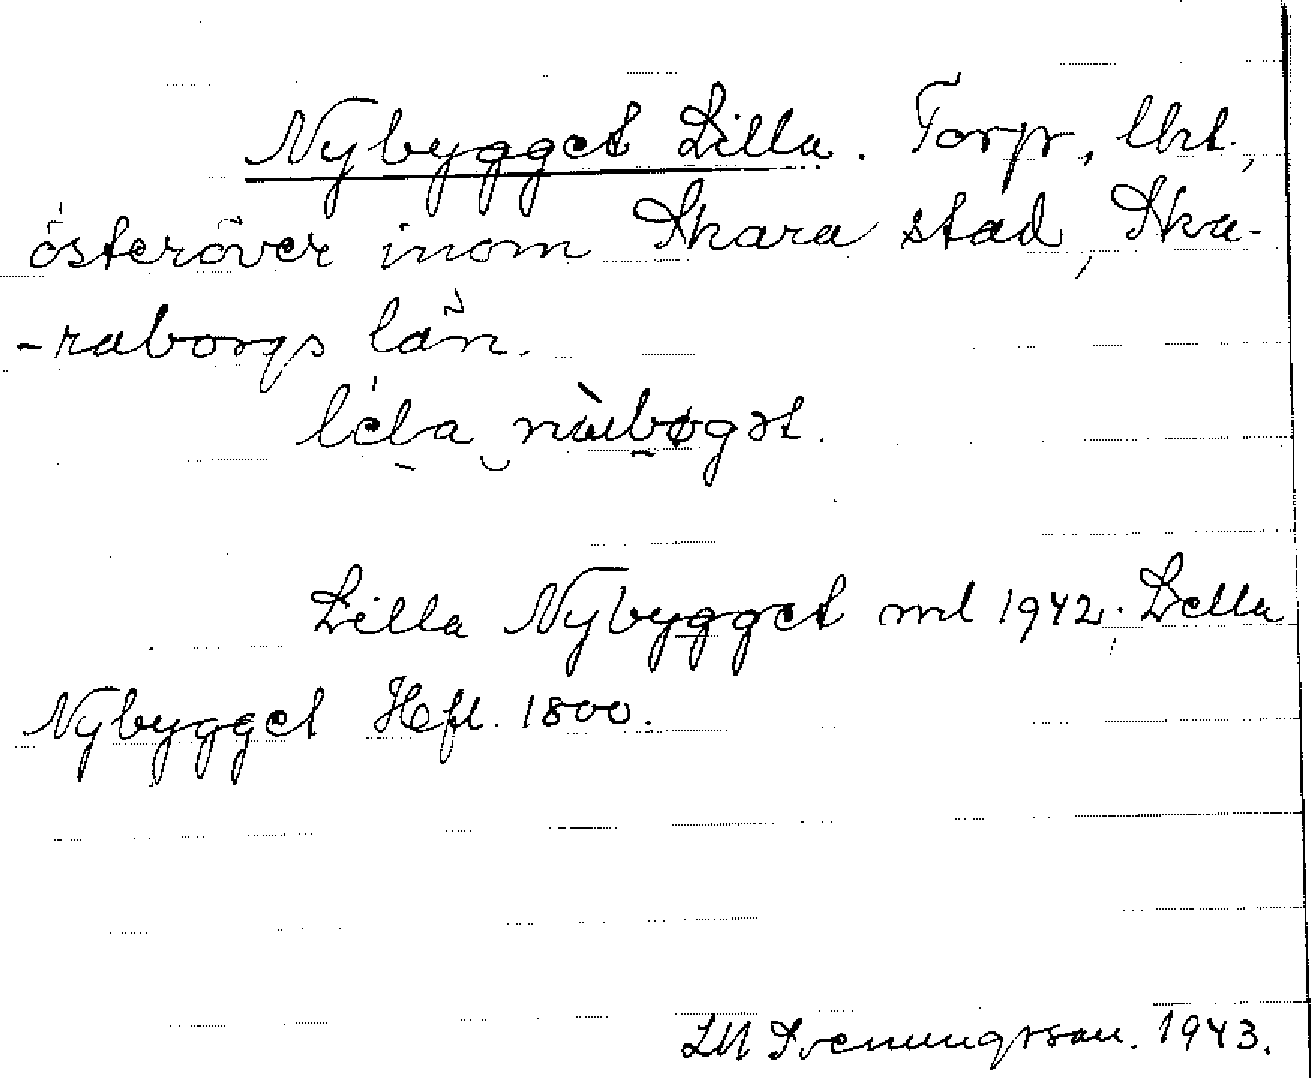 Nybygget Lilla. Torp, lht.,
österöver inom Skara stad, Ska-
-raborgs län.
Lilla Nybygget ml 1942; Lella
Nybygget Hfl. 1800.
LM Svenungsson. 1943.